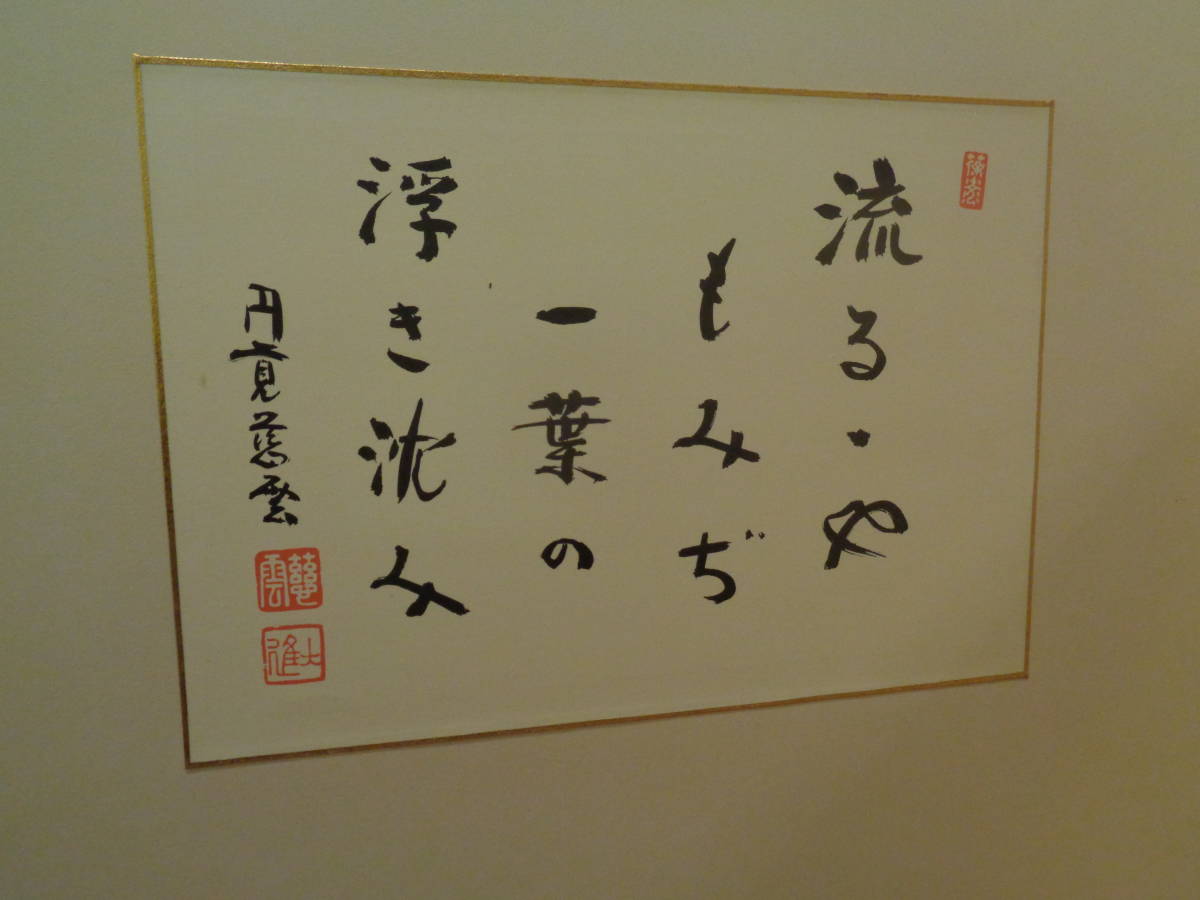 流る・や
もみぢ
一葉の
浮き沈み
円覚慈雲
慈雲